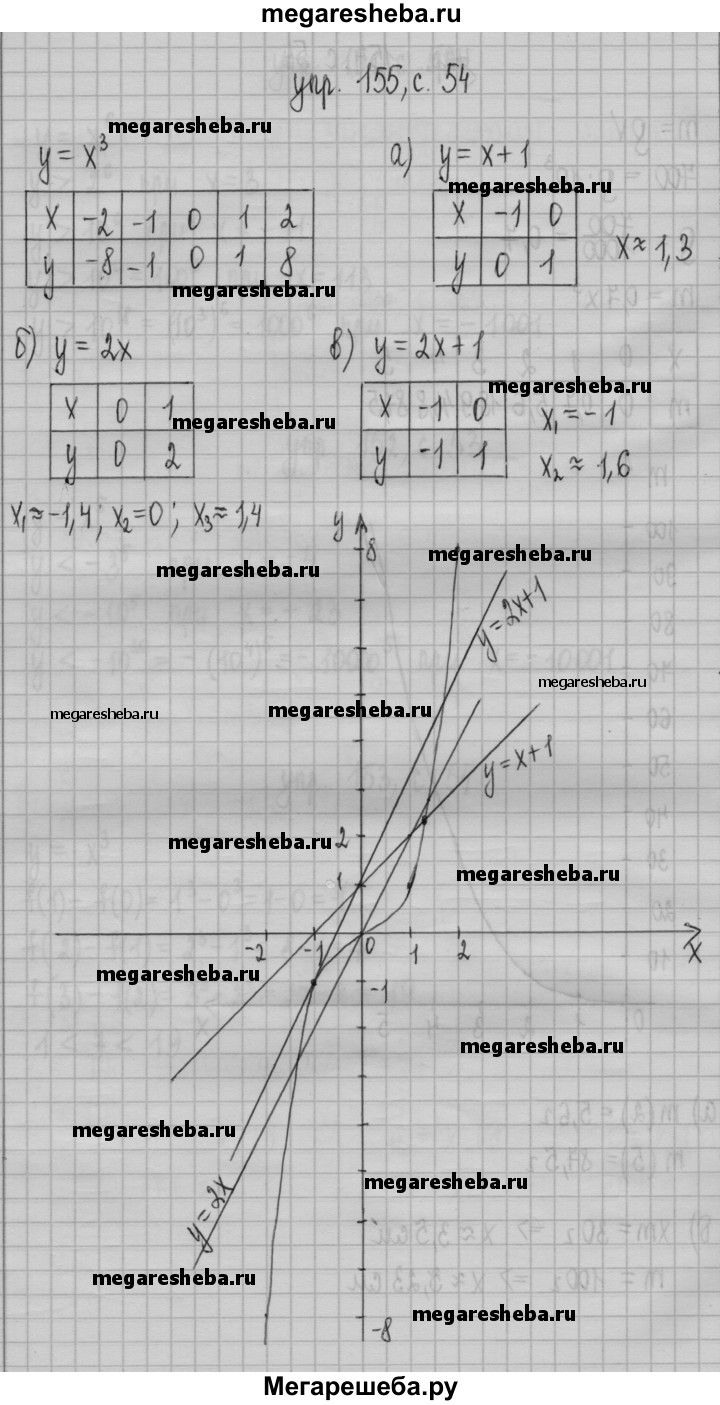 megaresheba.ru
упр. 155, с. 54
megaresheba.ru
y = x³
а) y = x+1
megaresheba.ru
x -2 -1 0 1 2
y -8 -1 0 1 8
x -1 0
y 0 1
x ≈ 1,3
megaresheba.ru
б) y = 2x
в) y = 2x+1
megaresheba.ru
x 0 1
y 0 2
megaresheba.ru
x -1 0
y -1 1
x₁ = -1
x₂ ≈ 1,6
megaresheba.ru
x₁ ≈ -1,4; x₂ = 0; x₃ ≈ 1,4
y
8
megaresheba.ru
megaresheba.ru
y = 2x+1
megaresheba.ru
megaresheba.ru
megaresheba.ru
y = x+1
2
megaresheba.ru
megaresheba.ru
1
-2 -1 0 1 2 x
megaresheba.ru
-1
megaresheba.ru
megaresheba.ru
megaresheba.ru
y = 2x
megaresheba.ru
megaresheba.ru
-8
Мегарешеба.ру